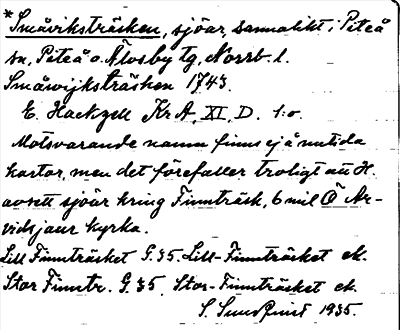 *Småviksträsken, sjöar, sannolikt i Piteå
sn, Piteå o. Älvsby tg, Norrb. l.
Småwijksträsken 1743.
E. Hackzell Kr A, XI, D. 1:o
Motsvarande namn finns ej å nutida
kartor, men det förefaller troligt att H.
avsett sjöar kring Finnträsk, 6 mil Ö Ar-
vidsjaur kyrka.
Lill Finnträsket G. 35. Lill-Finnträsket ek.
Stor Finntr. G. 35. Stor-Finnträsket ek.
S. 1935.